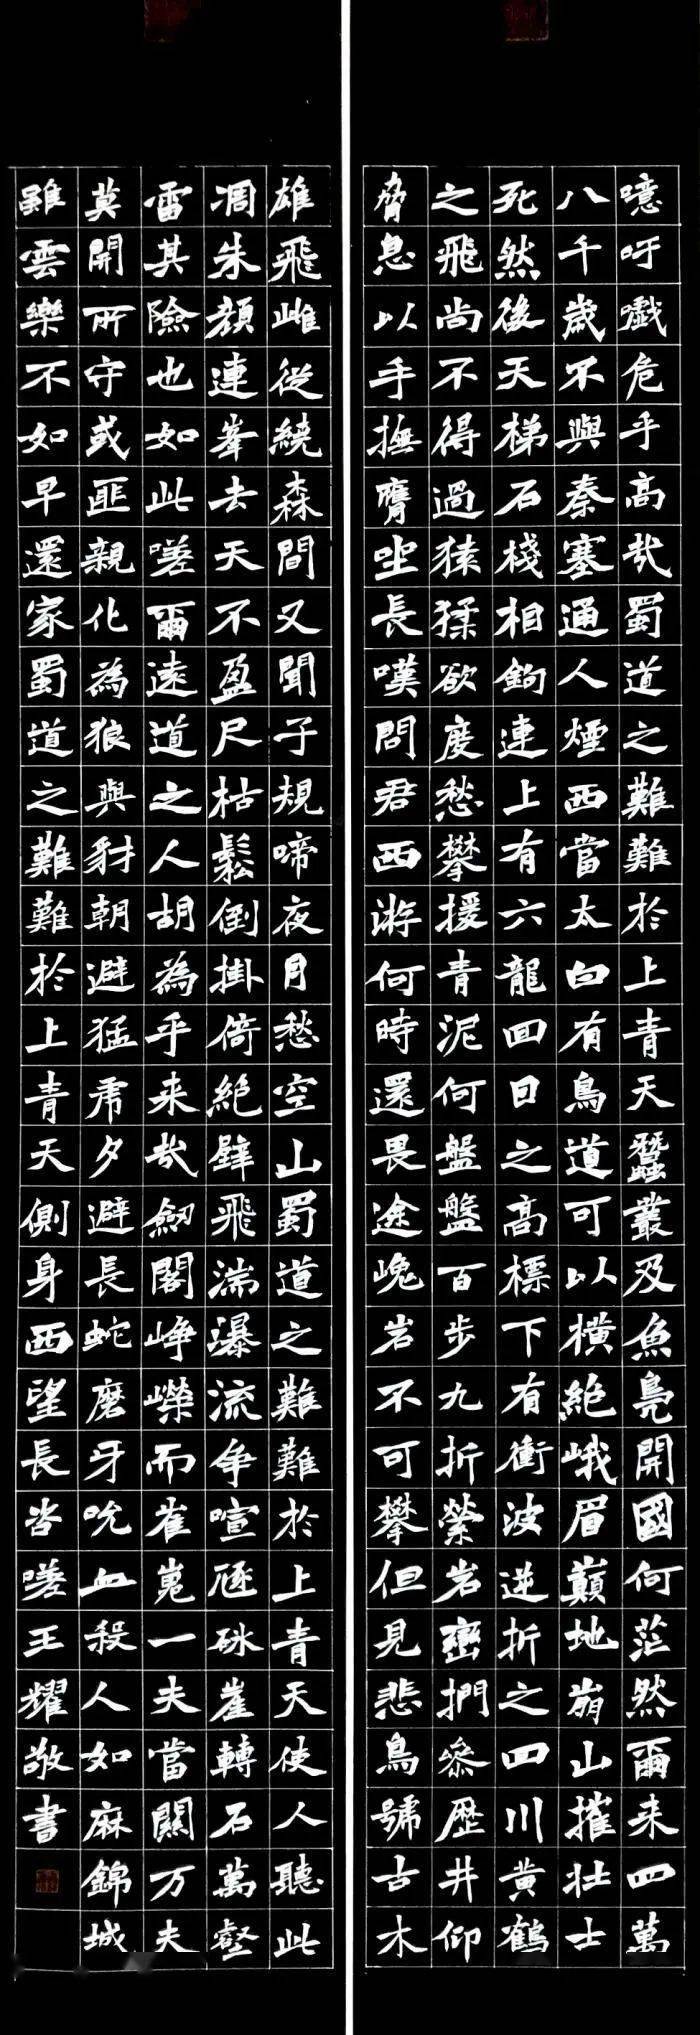 噫吁嚱危乎高哉蜀道之難難於上青天蠶叢及魚鳧開國何茫然爾来四萬
八千歲不與秦塞通人煙西當太白有鳥道可以橫絕峨眉巔地崩山摧壯士
死然後天梯石棧相鉤連上有六龍回日之高標下有衝波逆折之四川黄鶴
之飛尚不得過猿猱欲度愁攀援青泥何盤盤百步九折縈岩巒捫參歷井仰
脅息以手撫膺坐長嘆問君西游何時還畏途巉岩不可攀但見悲鳥號古木
雄飛雌從繞森間又聞子規啼夜月愁空山蜀道之難難於上青天使人聽此
凋朱顏連峯去天不盈尺枯鬆倒掛倚絕壁飛湍瀑流争喧豗砯崖轉石萬壑
雷其險也如此嗟爾遠道之人胡為乎来哉劒閣崢嶸而崔嵬一夫當關万夫
莫開所守或匪親化為狼與豺朝避猛虎夕避長蛇磨牙吮血殺人如麻錦城
雖雲樂不如早還家蜀道之難難於上青天側身西望長咨嗟王耀敬書